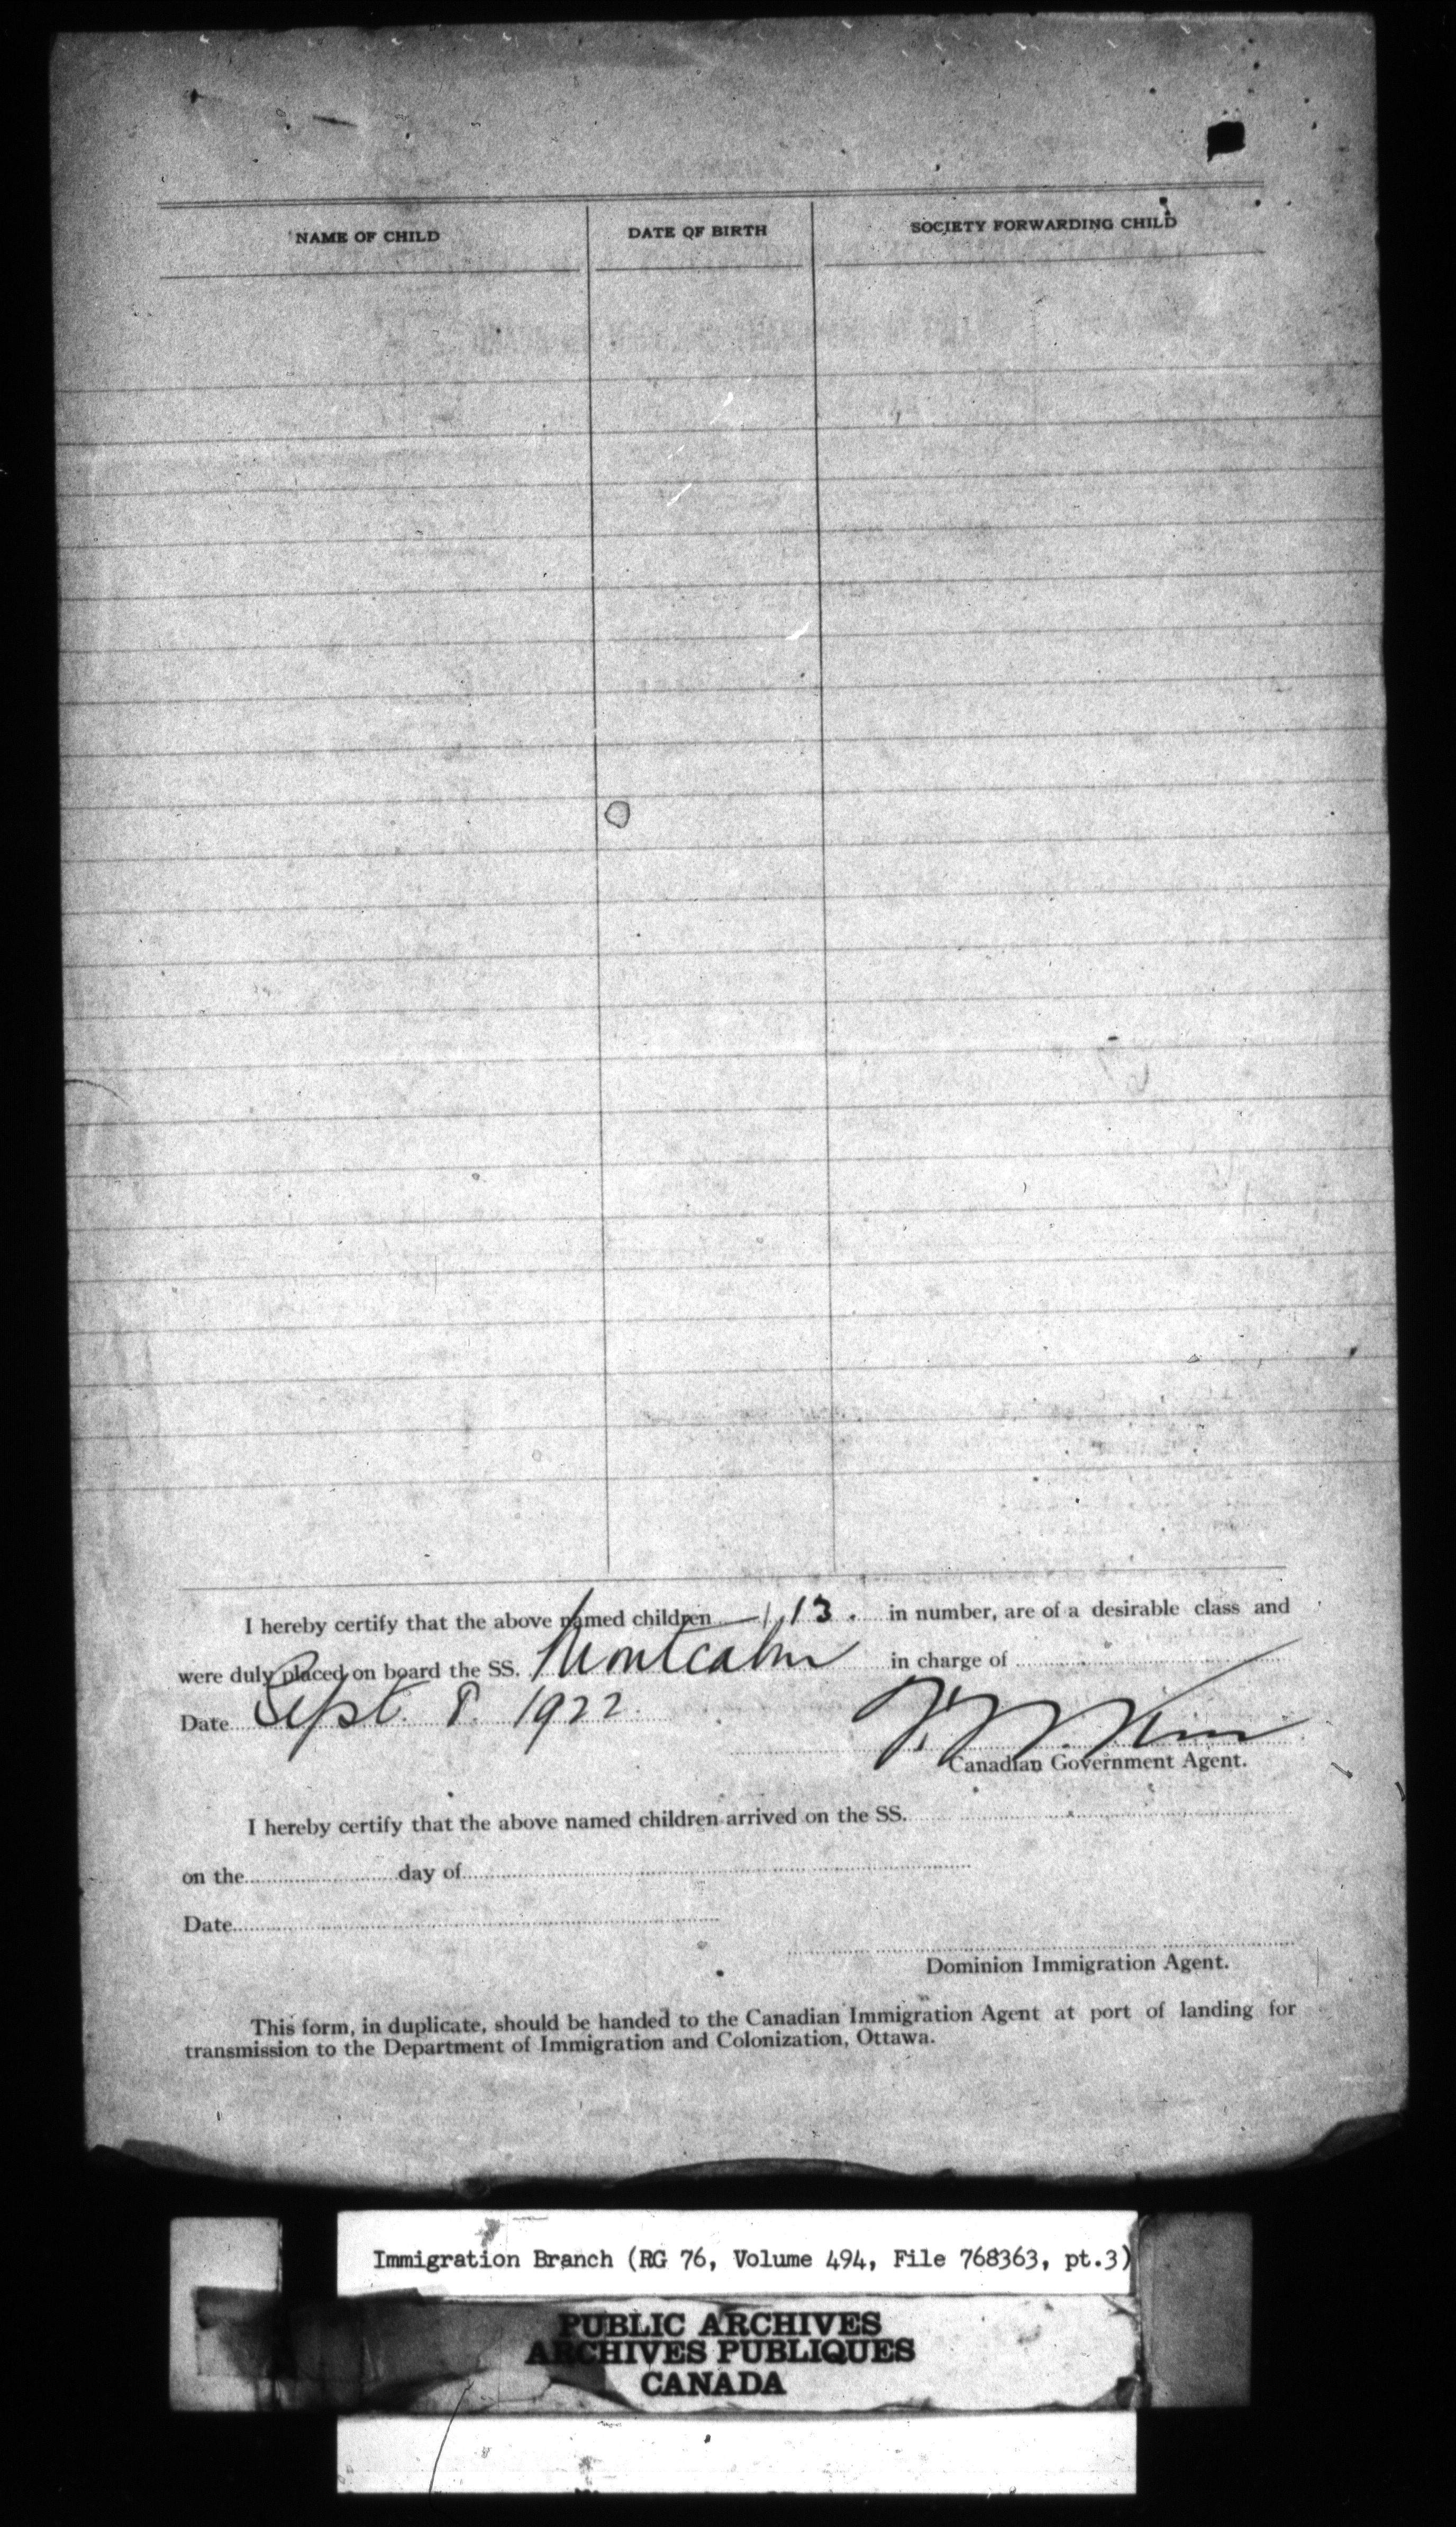 NAME OF CHILD DATE OF BIRTH SOCIETY FORWARDING CHILD
I hereby certify that the above named children 13. in number, are of a desirable class and
were duly placed on board the SS. Montcalm in charge of
Date Sept. 8. 1922.
Canadian Government Agent.
I hereby certify that the above named children arrived on the SS.
on the day of
Date
Dominion Immigration Agent.
This form, in duplicate, should be handed to the Canadian Immigration Agent at port of landing for
transmission to the Department of Immigration and Colonization, Ottawa.
Immigration Branch (RG 76, Volume 494, File 768363, pt.3)
PUBLIC ARCHIVES
ARCHIVES PUBLIQUES
CANADA